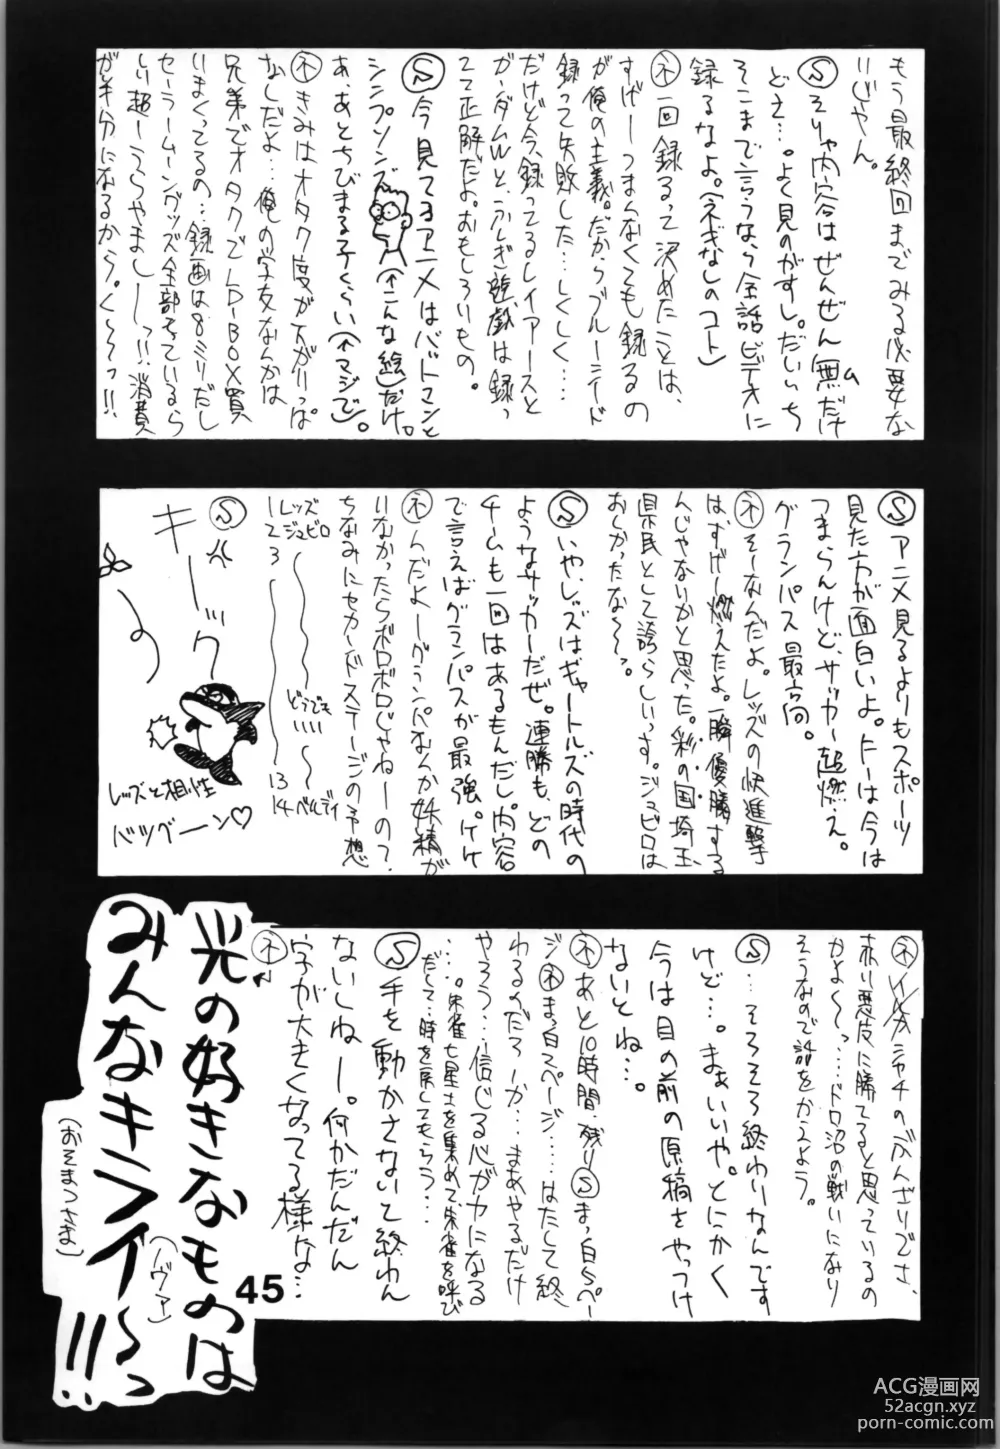 もう最終回までみる必要な
いじゃん。
Ⓢそりゃ内容はぜんぜん無だけ
ム
どさ…。よく見のがすし。だいいち
そこまで言うなら全話ビデオに
録るなよ。(ネギなしのコト)
ネ一回録るって決めたことは、
すげーつまんなくても録るの
が俺の主義。だからブルーシード
録って失敗した…しくしく…
だけど今、録ってるレイアースと
ガンダムWと、ふしぎ遊戯は録っ
てて正解だよ。おもしろいもの。
Ⓢ今見てるアニメはバットマンと
シンプソンズ(↑こんな絵)だけ。
あ、あとちびまる子くらい(↑マジで)。
ネきみはオタク度が下がりっぱ
なしだよ…俺の学友なんかは
兄弟でオタクでLD-BOX買
いまくってるの…録画は8ミリだし
セーラームーングッズ全部そているら
しい超ーうらやましーっ!!消費
が半分になるから。く〜っ!!
Ⓢアニメ見るよりもスポーツ
見た方が面白いよ。Fーは今は
つまらんけど、サッカー超燃え。
グランパス最高。
ネそーなんだよ。レッズの快進撃
はすげー燃えたよ。一瞬優勝する
んじゃないかと思った。彩の国埼玉
県民として誇らしいっす。ジュビロは
おしかったな〜っ。
Ⓢいや、レッズはギャートルズの時代の
ようなサッカーだぜ。連勝も、どの
チームも一回はあるもんだし。内容
で言えばグランパスが最強。ケケ
ネんだよーグランパなんか妖精が
いなかったらボロボロじゃねーの?
ちなみにセカンドステージの予想
1 レッズ
2 ジュビロ
3
どうでもいい
13
14 ベルディ
Ⓢ
キーック
レッズと相性
バツグーン♡
ネイ
シャチのぶんざいでさ、
赤い悪皮に勝てると思っているの
かよ〜っ…ドロ沼の戦いになり
そうなので話をかえよう。
Ⓢ…そろそろ終わりなんです
けど…。まぁいいや。とにかく
今は目の前の原稿をやっつけ
ないとね…。
ネあと10時間、残りⓈまっ白5ペー
ジネまっ白スページ…はたして終
わるのだろーか…まあやるだけ
やろう…信じる心が力になる
…。朱雀七星士を集めて朱雀を呼び
だして…時を戻してもらう…
Ⓢ手を動かさないと終わん
ないしねー。何かだんだん
字が大きくなってる様な…
ネ
光の好きなものは
みんなキライ〜っ!!
(ノヴァ)
(おそまつさま)
45
ACG漫画网
52acgn.xyz
porn-comic.com